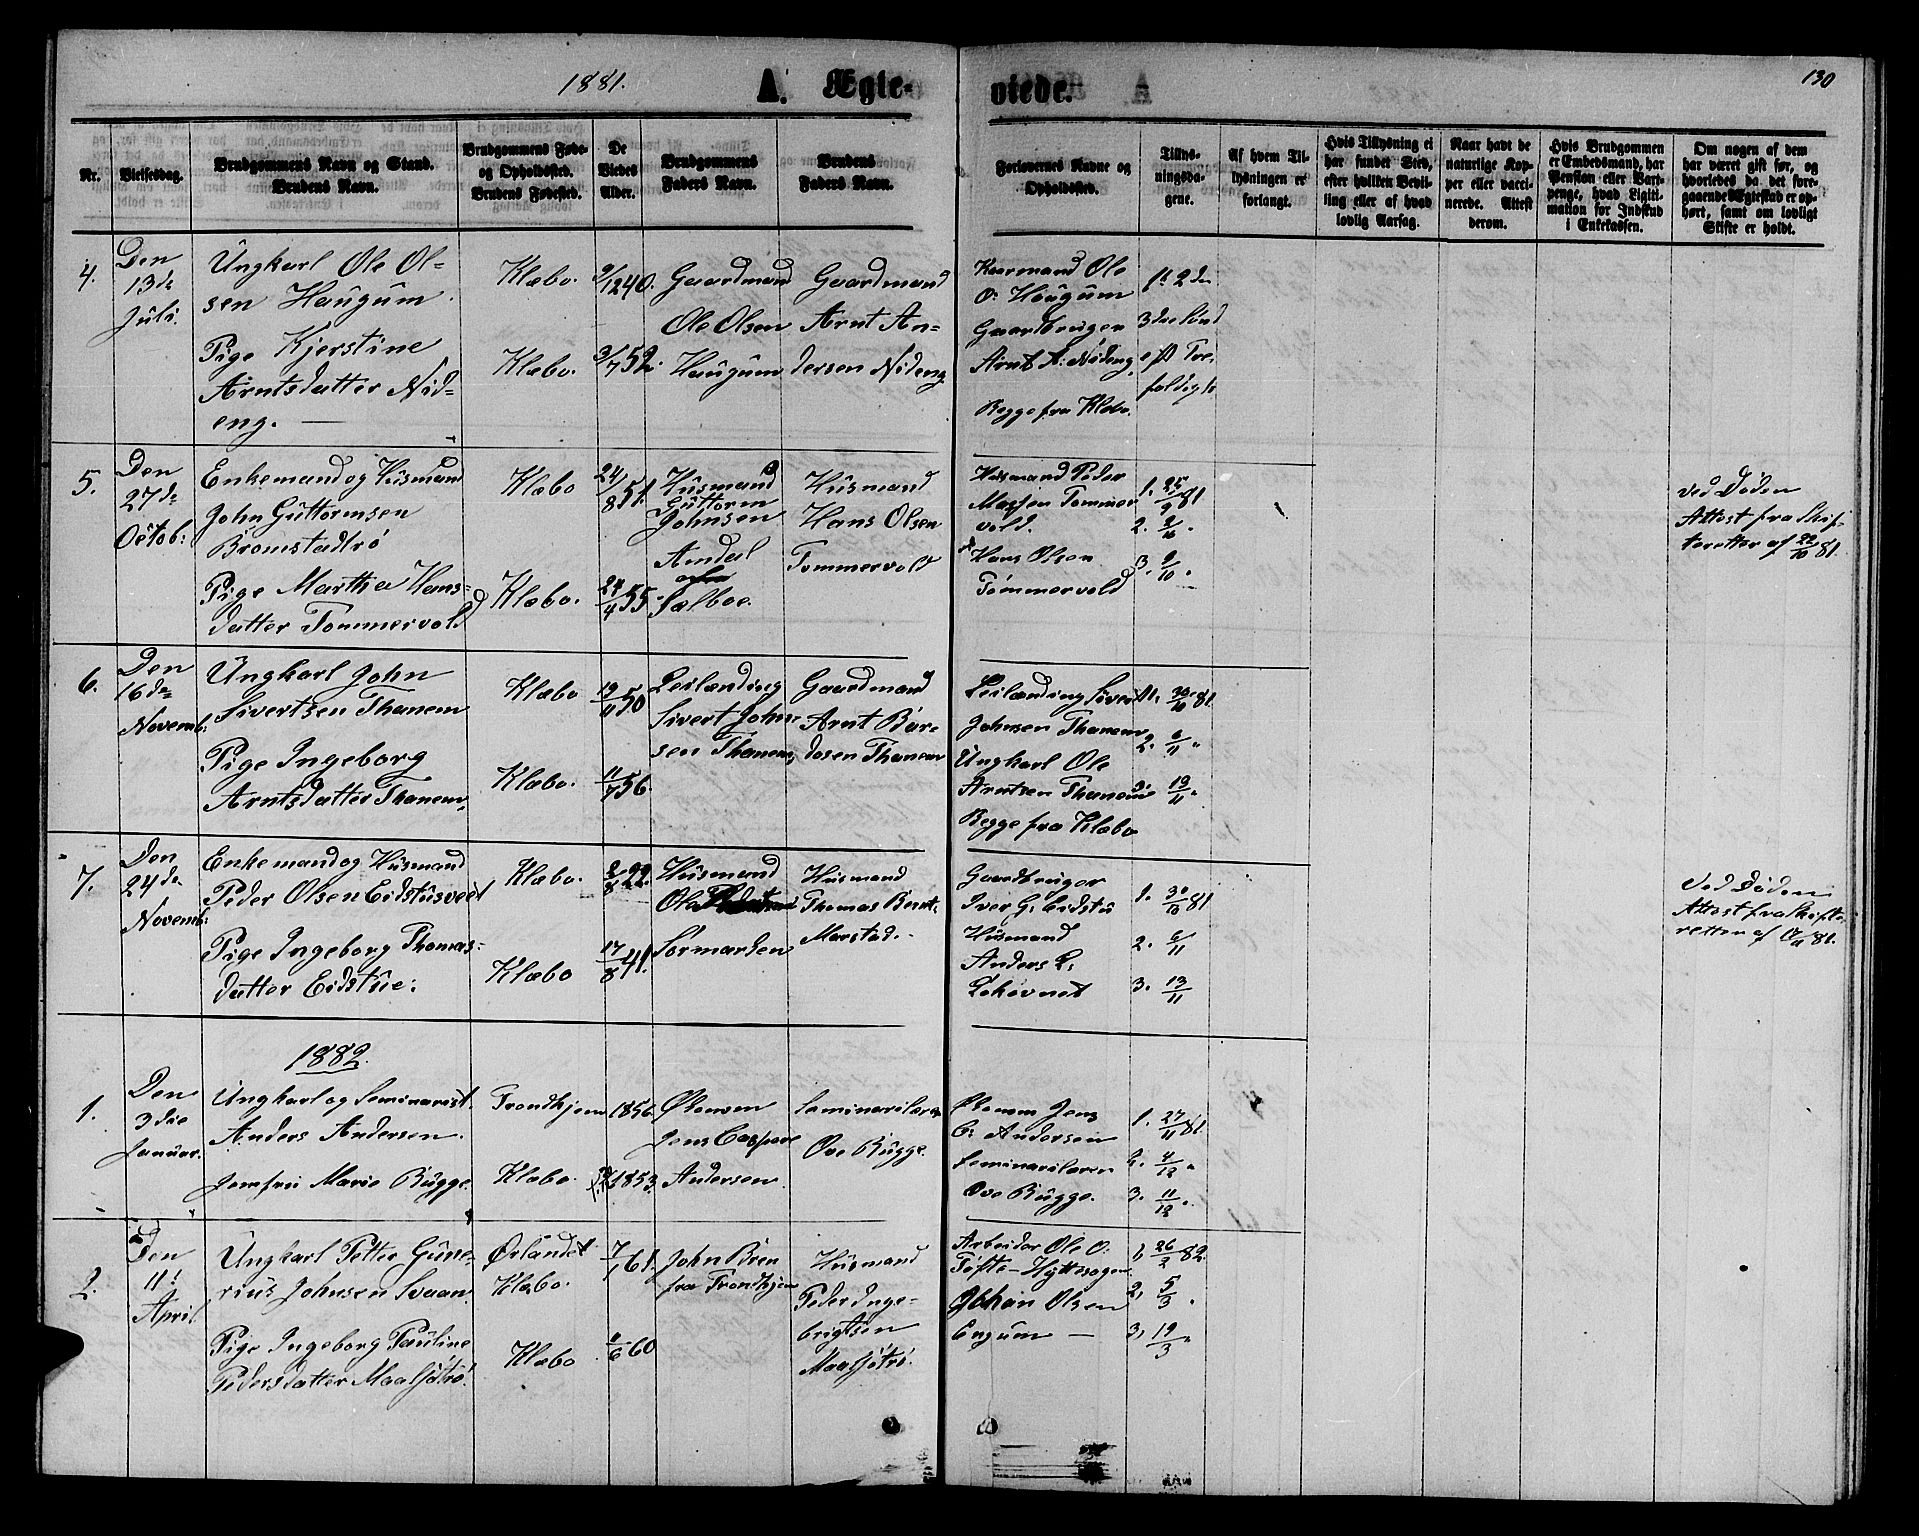 1881.
A. Ægte-
viede.
130
Nr.
Vielsesdag.
Brudgommens Navn og Stand.
Brudens Navn.
Brudgommens Føde-
og Opholdssted.
Brudens Fødested.
De
Viedes
Alder.
Brudgommens
Faders Navn.
Brudens
Faders Navn.
Forlovernes Navne og
Opholdssted.
Tillys-
ningsda-
gene.
Af hvem Til-
lysningen er
forlangt.
Hvis Tillysning ei
har fundet Sted,
efter hvilken Bevil-
ling eller af hvad
lovlig Aarsag.
Naar havt de
naturlige Kop-
per eller vacci-
nerede. Attest
derom.
Hvis Brudgommen
er Embedsmand, har
Pension eller Vart-
penge, hvad Ligiti-
mation for Indskud
i Enkekassen.
Om nogen af dem
har været gift før, og
hvorledes da det fore-
gaaende Egteskab er op-
hørt, samt om lovligt
Skifte er holdt.
4.
Den
13de
Juli.
Ungkarl Ole Ol-
sen Haugum.
Pige Kjerstine
Arntsdatter Nid-
eng.
Klæbo.
Klæbo.
9/12 40.
3/7 52.
Gaardmand
Ole Olsen
Haugum
Gaardmand
Arnt An-
dersen Nideng
Kaarmand Ole
O. Haugum
Gaardbruger
Arnt A. Nideng,
Begge fra Klæbo.
1ste 2den
3die Sønd
eft Tre-
foldigh
5.
Den
27de
Octob:
Enkemand og Husmand
John Guttormsen
Bromstadtrø
Pige Martha Hans-
datter Tommervold
Klæbo
Klæbo.
24/8 51.
24/4 55.
Husmand
Guttorm
Johnsen
Amdal
Sælboe.
Husmand
Hans Olsen
Tommervold
Husmand Peder
Tommer
vold.
Hans Olsen
Tømmervold
1. 25/9 81
2. 2/10 "
3. 9/10 "
Ved Døden
Attest fra Skif-
teretten af 22/10 81.
6.
Den
16de
Novemb:
Ungkarl John
Sivertsen Thanem
Pige Ingeborg
Arntsdatter Thanem.
Klæbo
Klæbo.
19/11 50
11/7 56.
Leilænding
Sivert John-
sen Thanem,
Gaardmand
Arnt Bar-
dosen Thanem
Leilænding Sivert
Johnsen Thanem
Ungkarl Ole
Arntsen Thanem
Begge fra Klæbo
1. 30/10 81.
2. 6/11 "
3. 13/11 "
7.
Den
24de
Novemb:
Enkemand og Husmand
Peder Olsen Eidstusveet
Pige Ingeborg Thomas-
datter Eidstue.
Klæbo.
Klæbo
2/8 22.
17/8 41.
Husmand
Ole
Sørmarken
Husmand
Thomas Bernt.
Marstad.
Gaardbruger
Iver G. Eidstu
Husmand
Anders L.
1. 30/10 81
2. 6/11
3. 13/11
Ved Døden
Attest fra Skifte-
retten af 17/11 81.
1882.
1.
Den
3die
Januar.
Ungkarl og Seminarist.
Anders Andersen.
Jomfru Marie Bugge.
Trondhjem
Klæbo.
1856.
1853.
Økonom
Jens Caspare
Andersen.
Seminarilærer
Ove Bugge.
Økonom Jens
C. Andersen
Seminarilærer
Ove Bugge.
1. 27/11 81.
2. 4/12 "
3. 11/12 "
2.
Den
11te
April
Ungkarl Petter Gune-
rius Johnsen Svaan.
Pige Ingeborg Pauline
Pedersdatter Maalsjøtrø.
Ørlandet
Klæbo.
Klæbo
7/1 61.
60
John Bren
fra Trondhjem
Husmand
Peder Inge-
brigtsen
Maalsjøtrø.
Arbeider Ole O.
Tofte-
Johan Olsen
Engum —
1, 26/2 82.
2, 5/3 "
3, 19/3 "